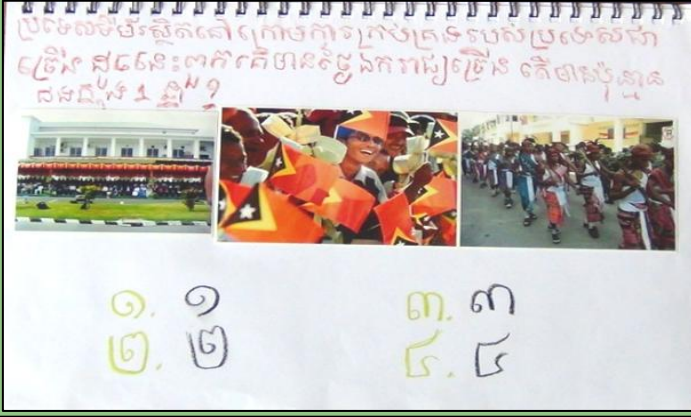 ប្រទេសទីម័រស្ថិតនៅក្រោមការគ្រប់គ្រងរបស់ប្រទេសជា
ច្រើន ដូចនេះពួកគេមានថ្ងៃឯករាជ្យច្រើន តើមានប៉ុន្មាន
ដងក្នុង ១ ឆ្នាំ ?
១. ១ ៣. ៣
២. ២ ៤. ៤